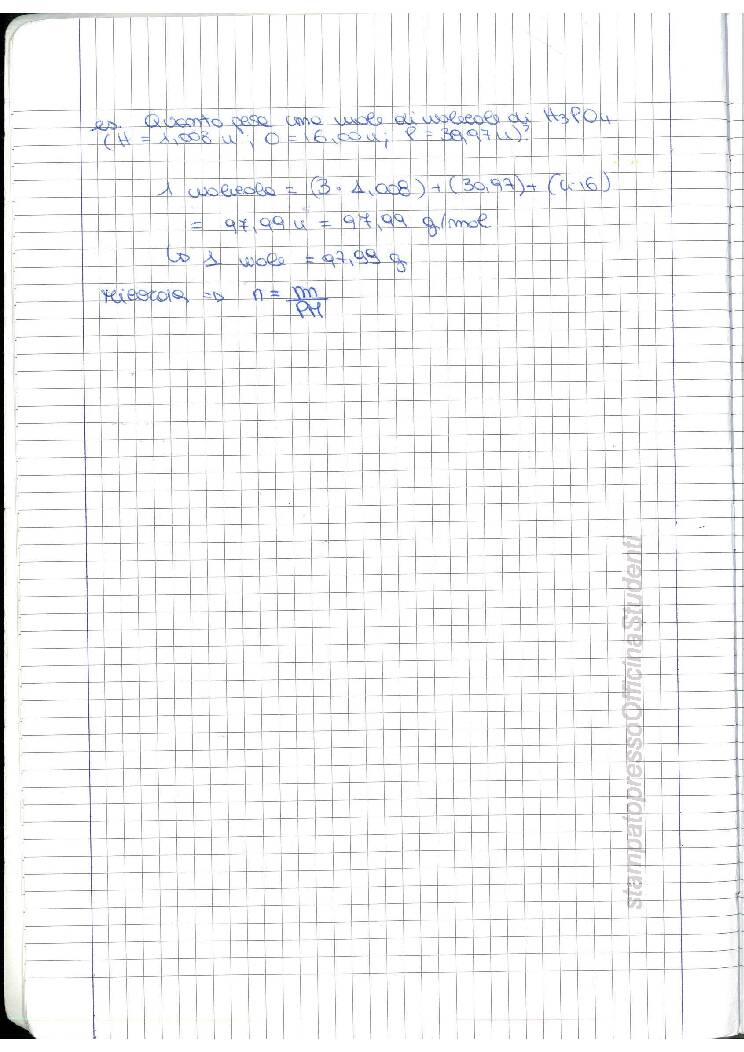 es. Quanto pesa una mole di molecole di H3PO4
(H = 1,008 u, O = 16,00 u; P = 30,97 u)?
1 molecola = (3 · 1,008) + (30,97) + (4·16)
= 97,99 u = 97,99 g/mol
↳ 1 mole = 97,99 g
ricorda => n = m/PM
stampatopressoOfficinaStudenti